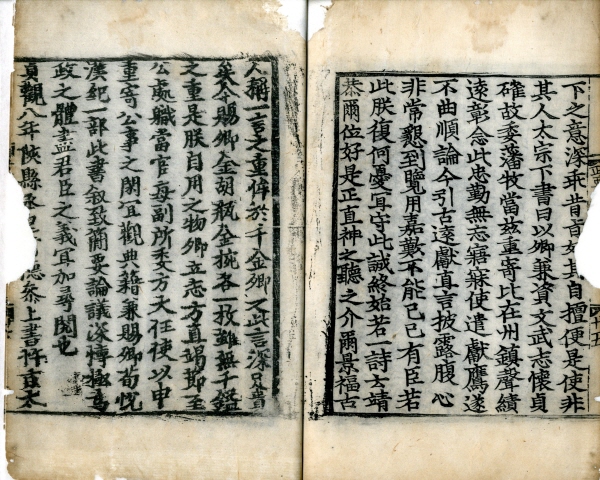 下之意深乖昔旨如其自擅便是使非
其人太宗下書曰以卿兼資文武志懷貞
確故委藩牧當玆重寄比在州鎮聲績
遠彰念此忠勤無忘寤寐使遣獻鷹遂
不曲順論今引古遠獻直言披露腹心
非常懇到覽用嘉歎不能已已有臣若
此朕復何憂宜守此誠終始若一詩云靖
恭爾位好是正直神之聽之介爾景福古
人稱一言之重侔於千金卿之此言深足貴
矣今賜卿金胡瓶金椀各一枚雖無千鎰
之重是朕自用之物卿立志方直竭節至
公處職當官每副所委方大任使以申
重寄公事之閑宜觀典籍兼賜卿荀悅
漢紀一部此書敘致簡要論議深博極爲
政之體盡君臣之義宜加尋閱也
貞觀八年陝縣丞德叅上書忤旨太